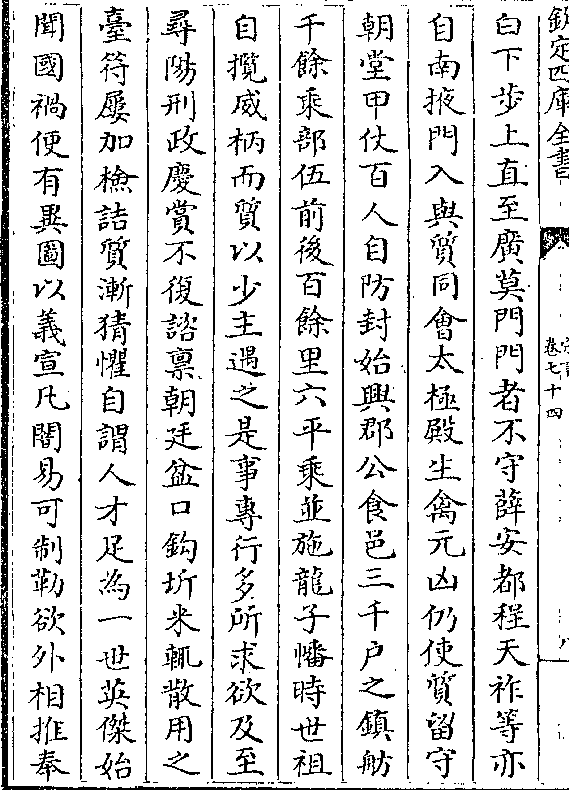 欽定四庫全書
卷七十四
白下步上直至廣莫門門者不守薛安都程天祚等亦
自南掖門入與質同會太極殿生禽元凶仍使質留守
朝堂甲仗百人自防封始興郡公食邑三千户之鎮舫
千餘乘部伍前後百餘里六平乘並施龍子幡時世祖
自攬威柄而質以少主遇之是事專行多所求欲及至
尋陽刑政慶賞不復諮稟朝廷盆口鈎圻米輒散用之
臺符屢加檢詰質漸猜懼自謂人才足為一世英傑始
聞國禍便有異圖以義宣凡闇易可制勒欲外相推奉